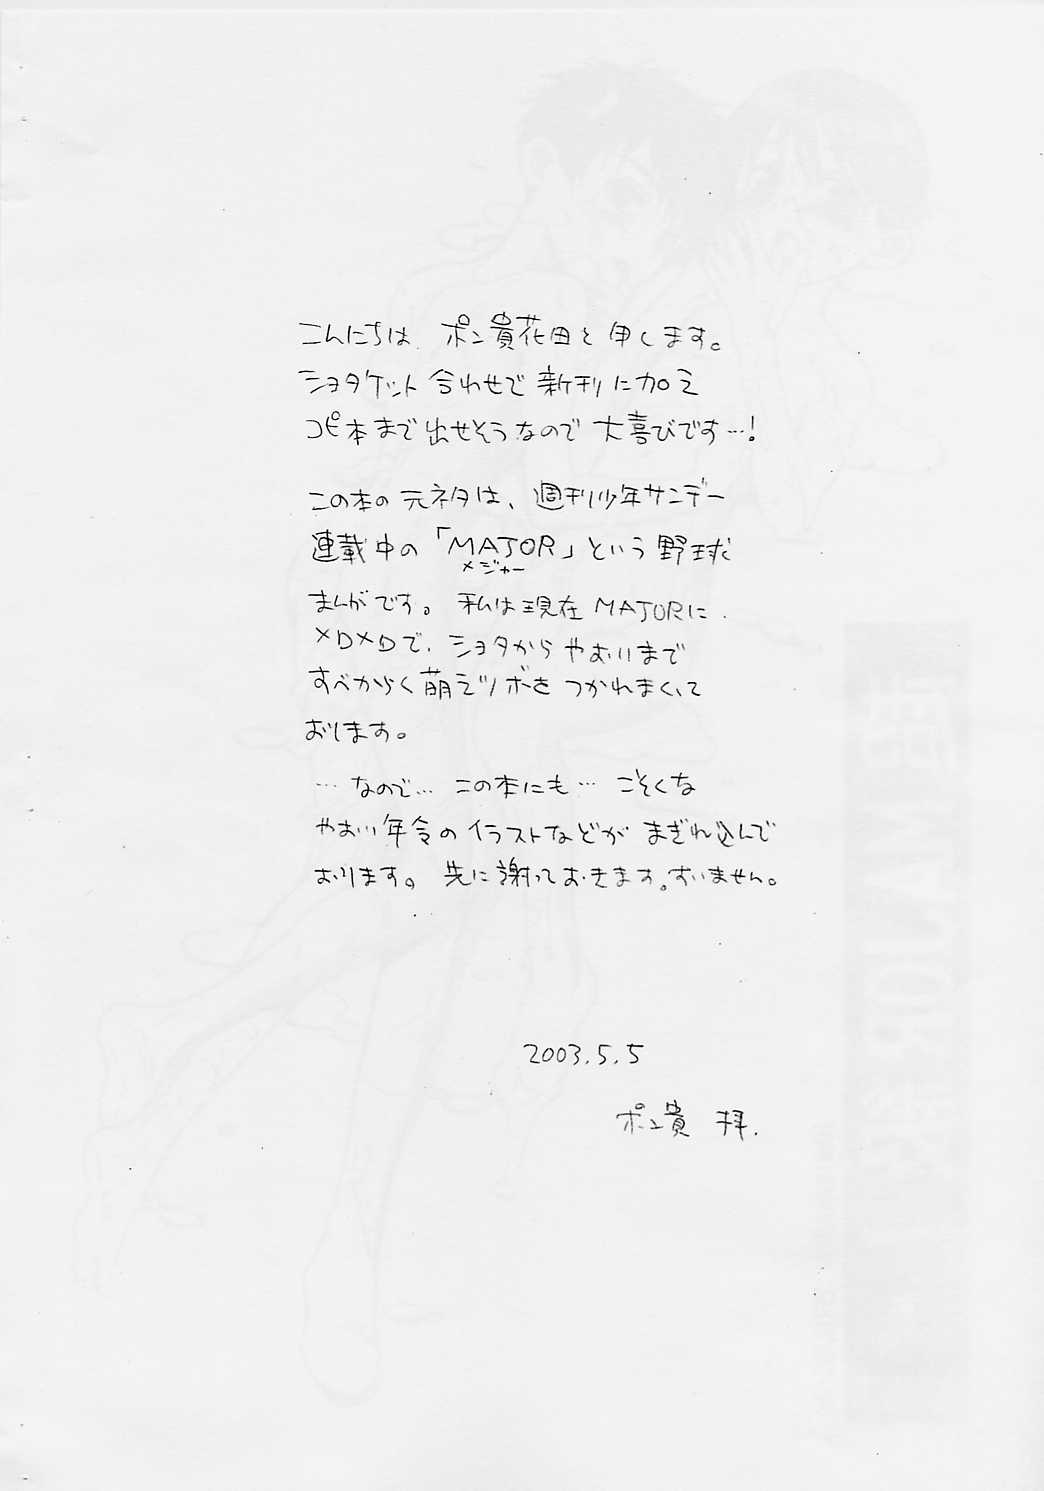 こんにちは、ポン貴花田と申します。
ショタケット合わせで新刊に加え
コピ本まで出せそうなので大喜びです…！
この本の元ネタは、週刊少年サンデー
連載中の「MAJOR」という野球
メジャー
まんがです。私は現在MAJORに
メロメロで、ショタからやおいまで
すべからく萌えツボをつかれまくって
おります。
…なので…この本にも…ごそくな
やおい年令のイラストなどがまぎれ込んで
おります。先に謝っておきます。すいません。
2003.5.5
ポン貴 拝.